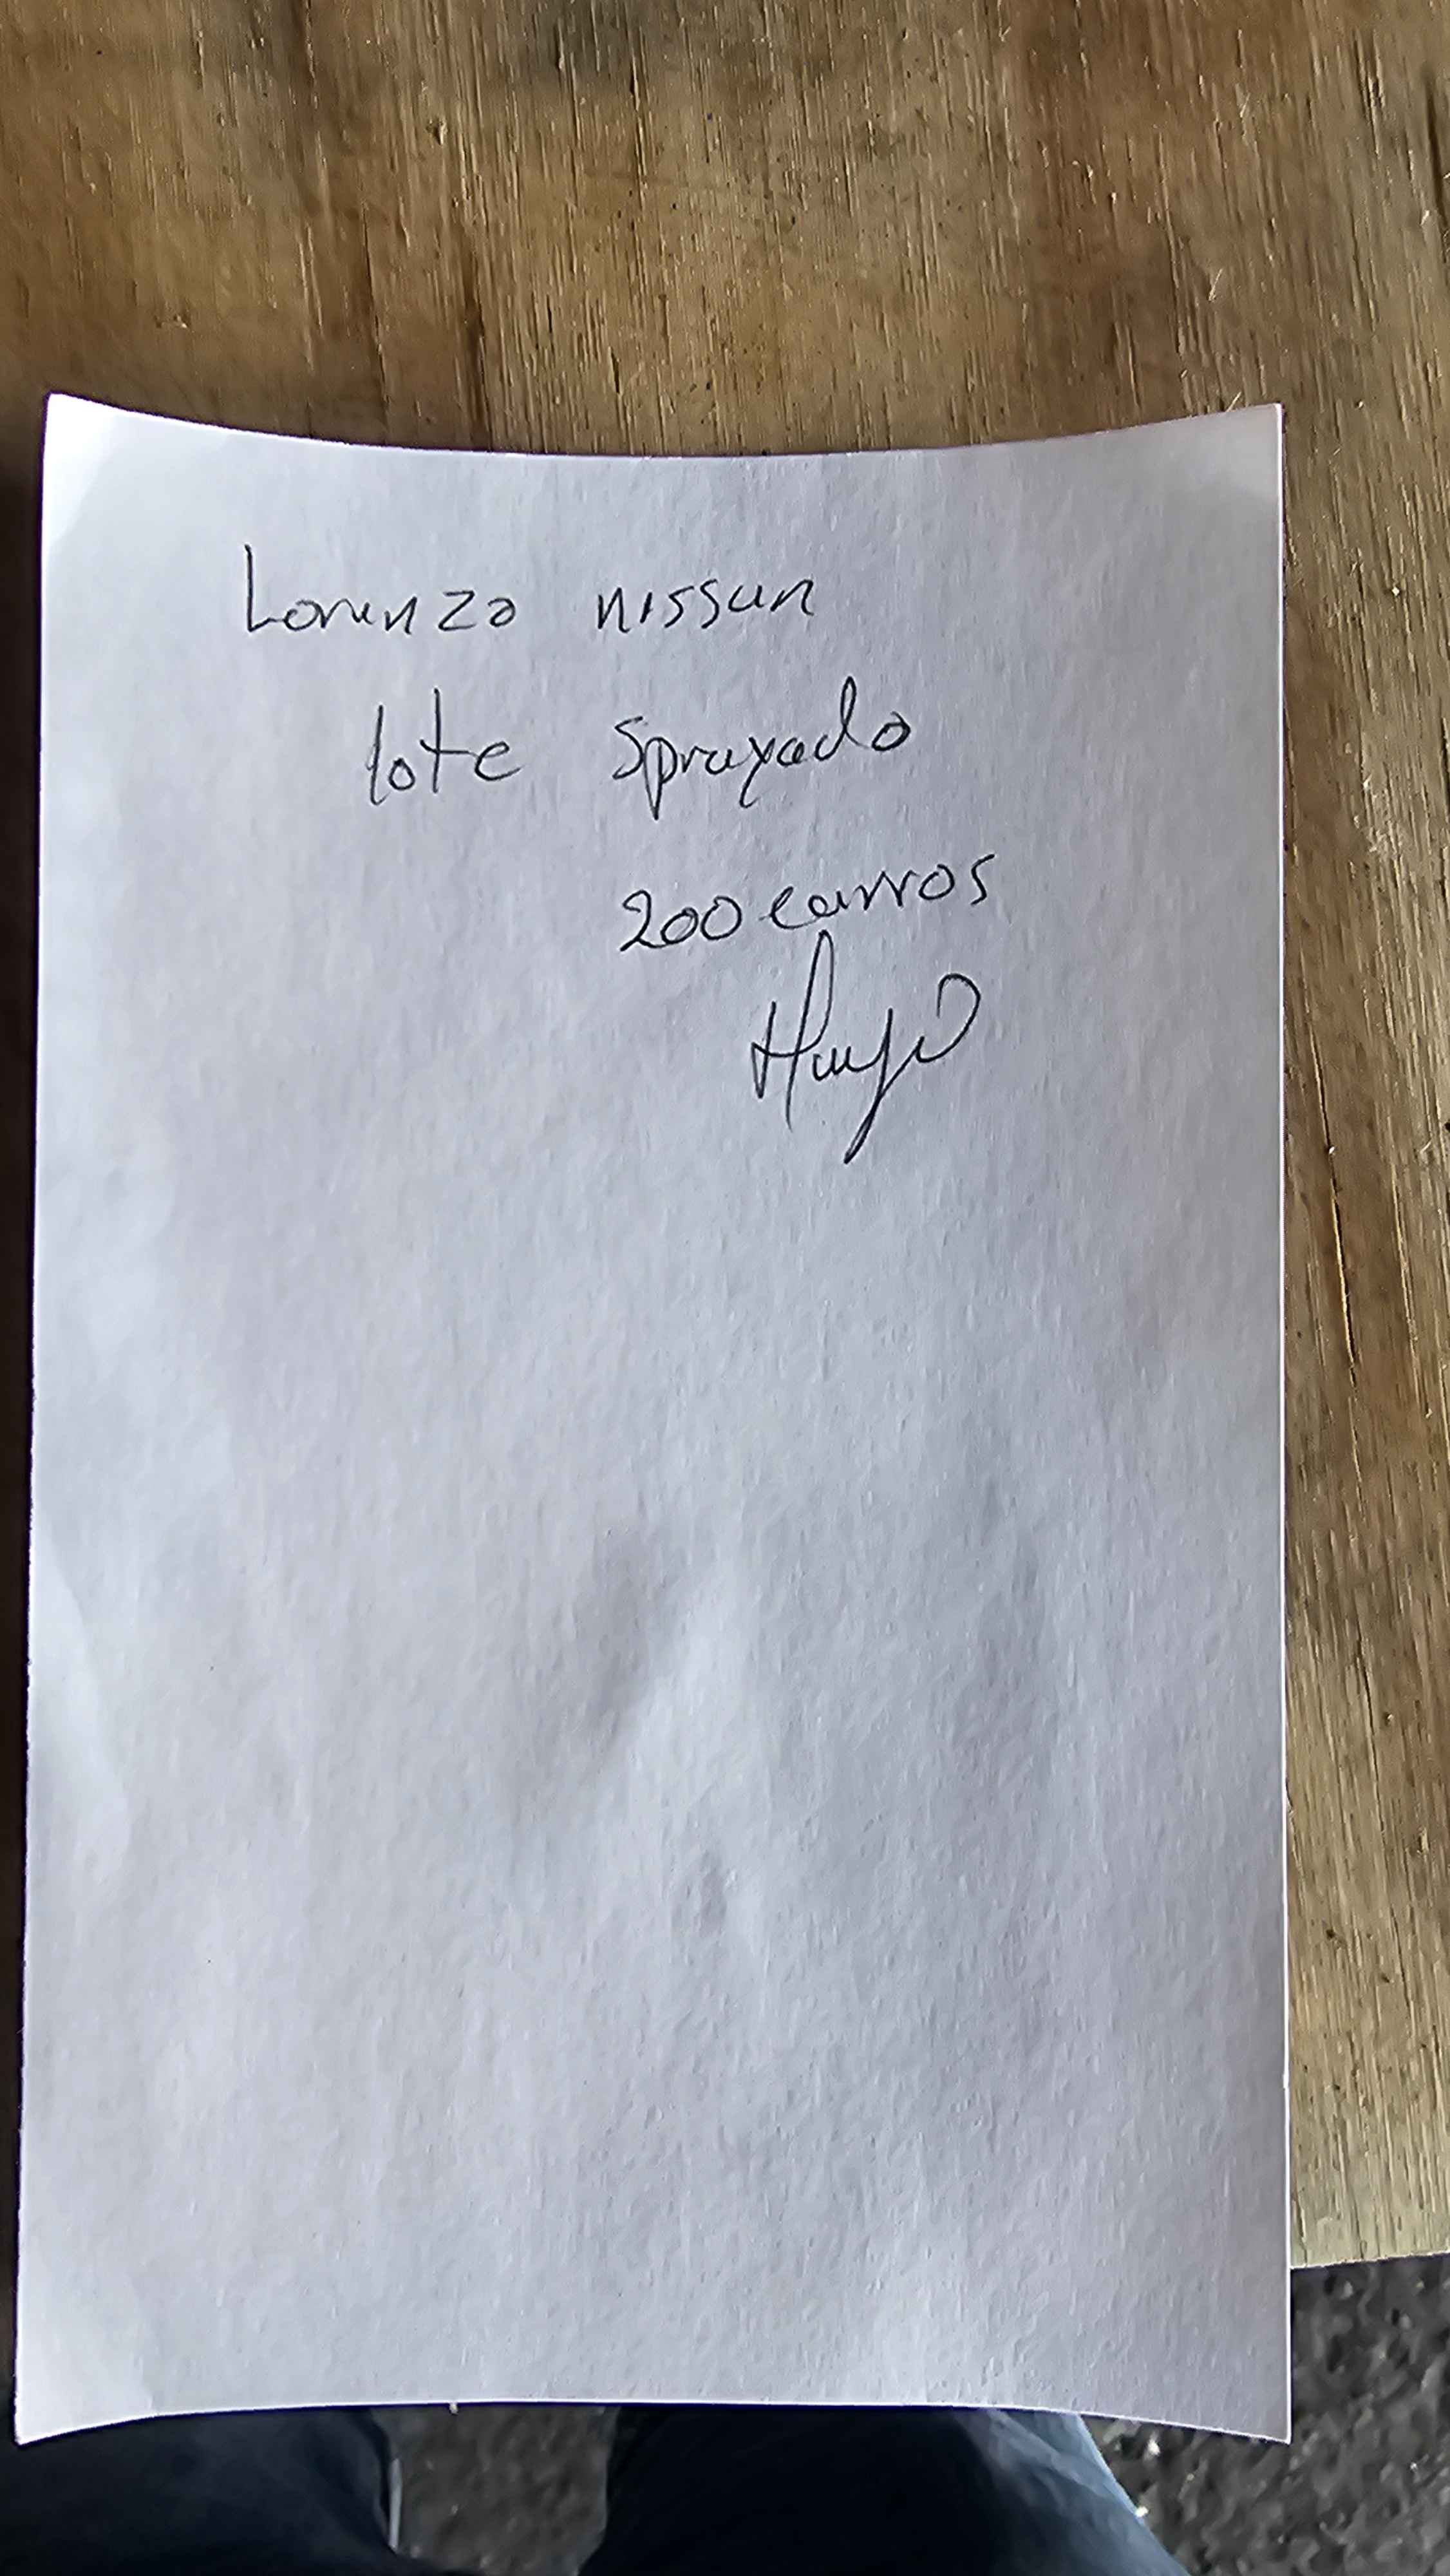 Lorenzo nissan
lote sprayado
200 carros
Hugo